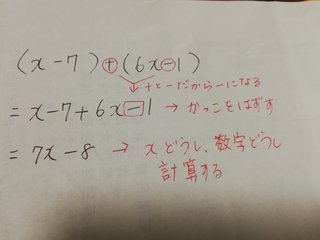 (x-7)+(6x-1)
+と-だから-になる
=x-7+6x-1→かっこをはずす
=7x-8→xどうし、数字どうし
計算する